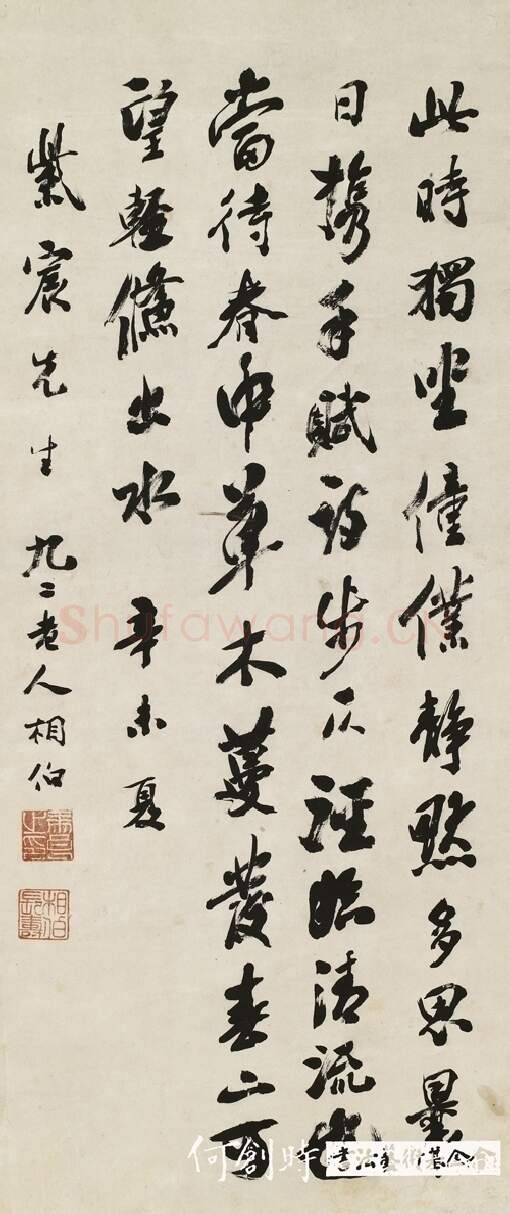 此時獨坐僮僕靜默多思曩
日攜手賦詩步仄逕臨清流也
當待春中草木蔓發春山可
望輕儵出水 辛未夏
紫宸先生 九二老人相伯
相伯長壽
Shufawang.CN
何創時書法藝術基金會